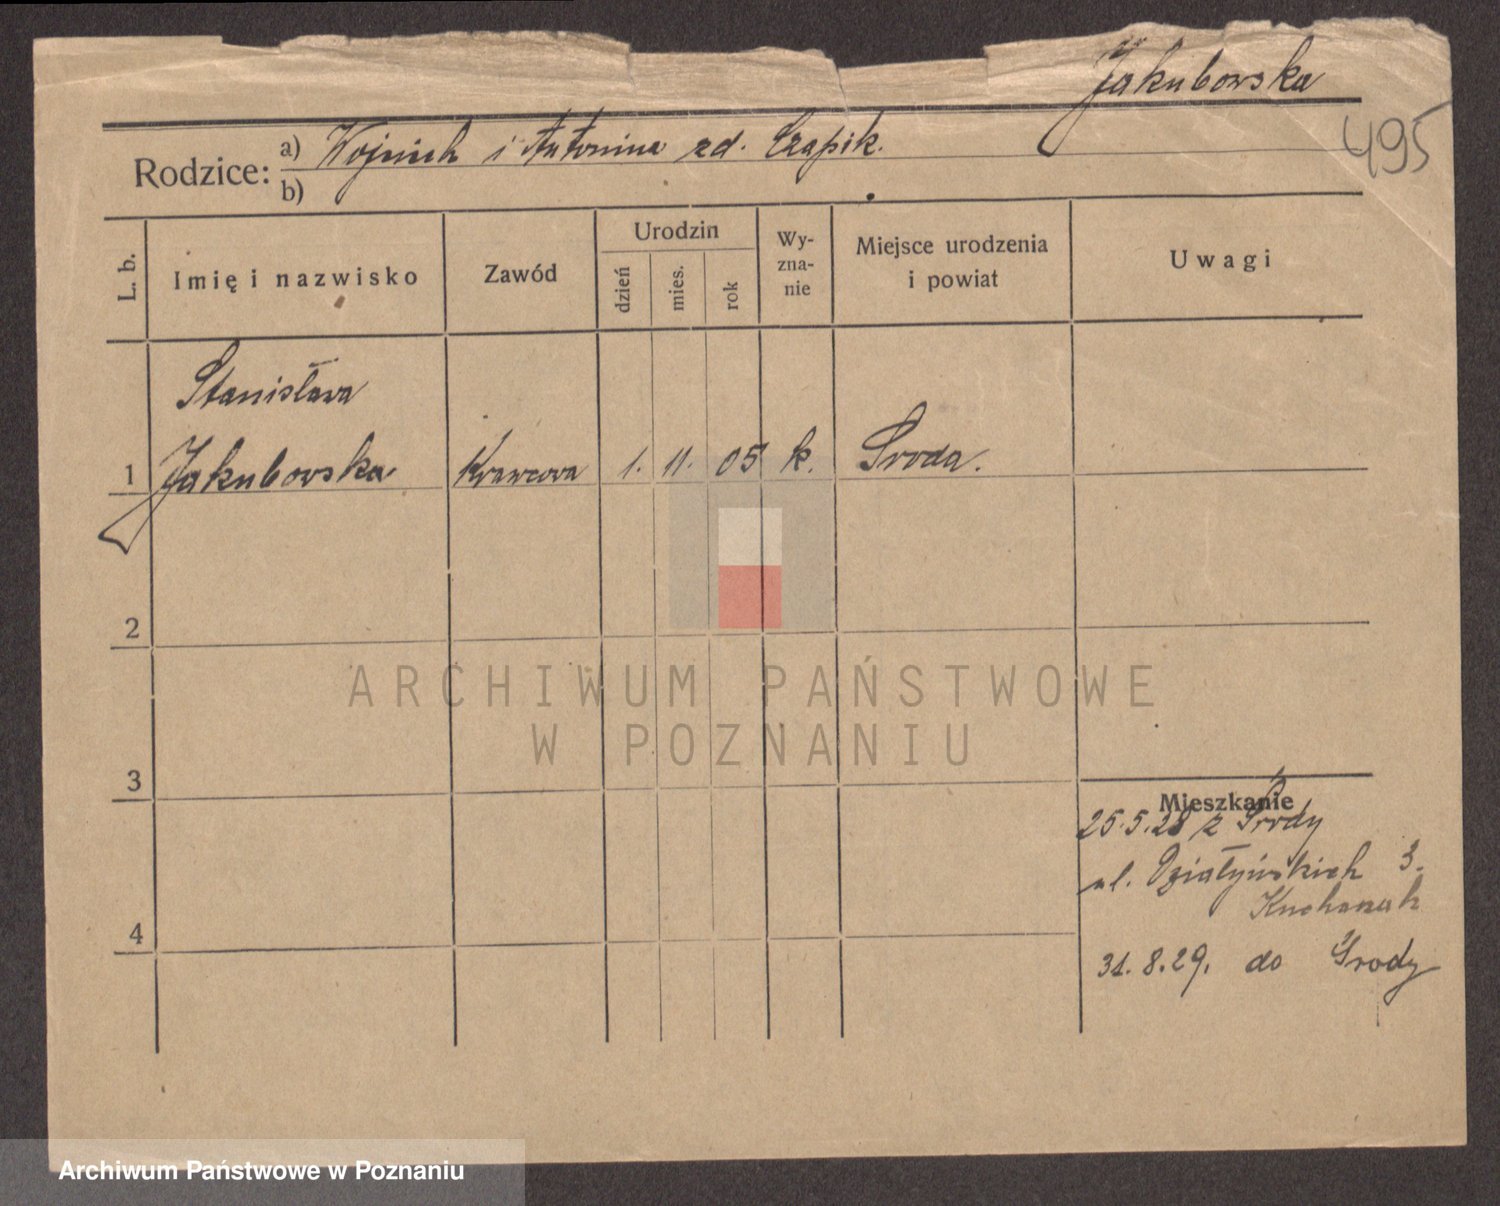 Jakubowska
495
Rodzice: a) Wojciech i Antonina zd. Czapik.
b)
L. b.
Imię i nazwisko
Zawód
Urodzin
dzień
mies.
rok
Wy-
zna-
nie
Miejsce urodzenia
i powiat
Uwagi
Stanisława
1 Jakubowska Krawcowa 1. 11. 05 k. Środa.
2
3
4
Mieszkanie
25.5.28 z Środy
ul. Działyńskich 3.
31.8.29. do Środy
ARCHIWUM PAŃSTWOWE
W POZNANIU
Archiwum Państwowe w Poznaniu